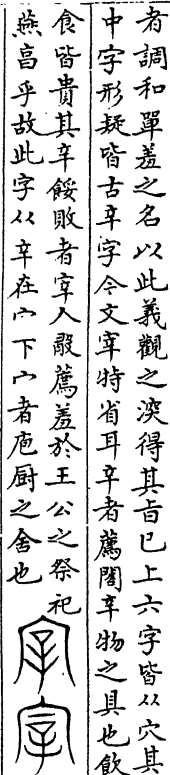 者調和單羞之名以此義觀之深得其旨已上六字皆从穴其
中字形疑皆古辛字今文宰特省耳辛者薦闔辛物之具也飲
食皆貴其辛餒敗者宰人殽薦羞於王公之祭祀
燕高乎故此字从辛在宀下宀者庖厨之舍也